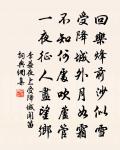 回樂烽前沙似雪
受降城外月如霜
不知何處吹蘆管
一夜征人盡望鄉
李益夜上受降城聞笛
詞典網